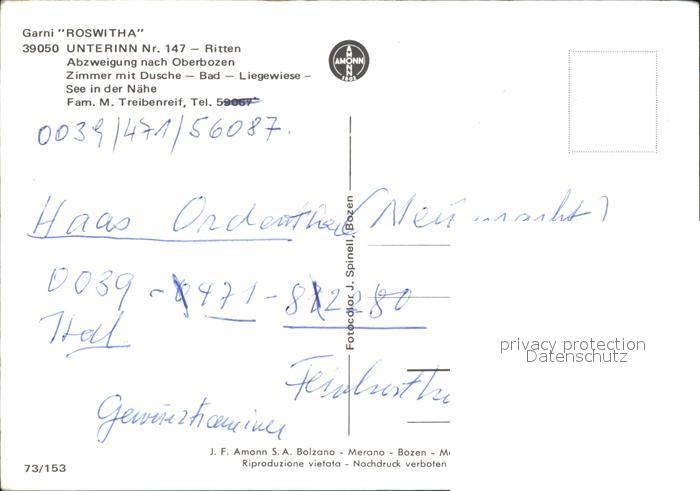 Garni "ROSWITHA"
39050 UNTERINN Nr. 147 – Ritten
Abzweigung nach Oberbozen
Zimmer mit Dusche – Bad – Liegewiese –
See in der Nähe
Fam. M. Treibenreif, Tel. 59067
AMONN
AMONN
1802
0039/471/56087.
Haas (Neumarkt)
0039 - 0471 - 812280
Fotocolor J. Spinell, Bozen
privacy protection
Datenschutz
Gewürztraminer
J. F. Amonn S.A. Bolzano - Merano - Bozen - M
Riproduzione vietata - Nachdruck verboten
73/153